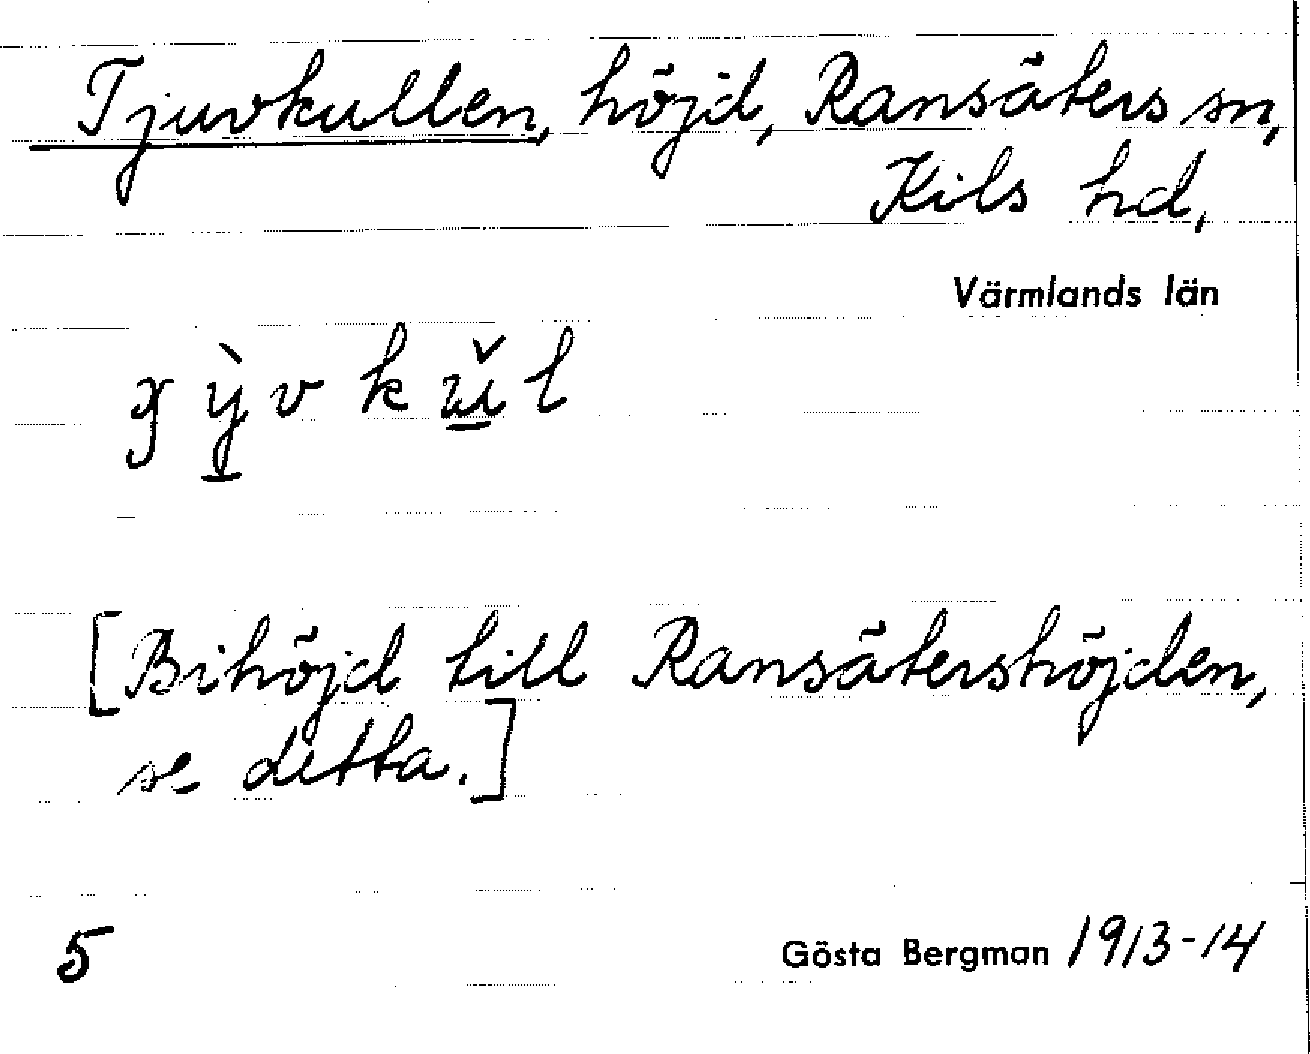 Tjuvkullen, höjd, Ransäters sn,
Kils hd,
Värmlands län
[Bihöjd till Ransätershöjden,
se detta.]
5 Gösta Bergman 1913-14